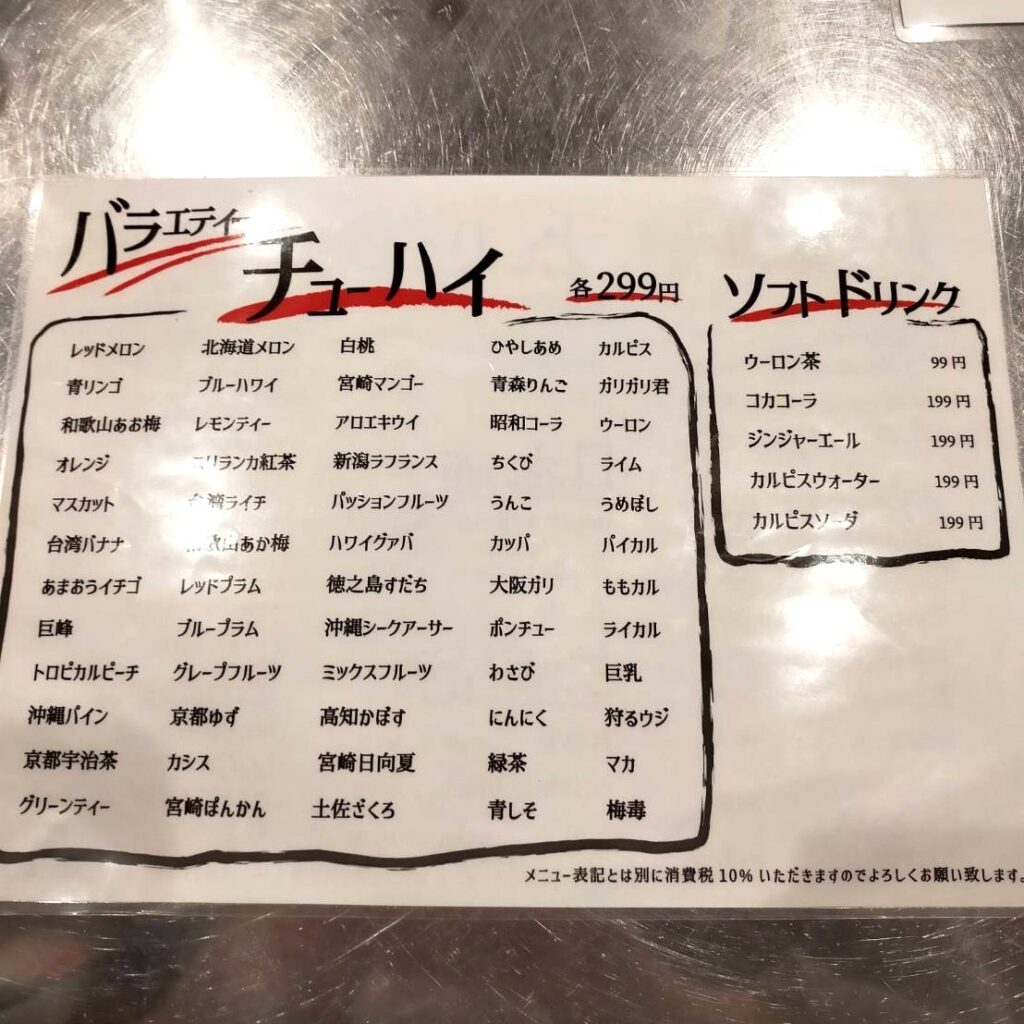 バラエティー
チューハイ 各299円
レッドメロン 北海道メロン 白桃 ひやしあめ カルピス
青リンゴ ブルーハワイ 宮崎マンゴー 青森りんご ガリガリ君
和歌山あお梅 レモンティー アロエキウイ 昭和コーラ ウーロン
オレンジ スリランカ紅茶 新潟ラフランス ちくび ライム
マスカット 台湾ライチ パッションフルーツ うんこ うめぼし
台湾バナナ 和歌山あか梅 ハワイグァバ カッパ パイカル
あまおうイチゴ レッドプラム 徳之島すだち 大阪ガリ ももカル
巨峰 ブループラム 沖縄シークアーサー ポンチュー ライカル
トロピカルピーチ グレープフルーツ ミックスフルーツ わさび 巨乳
沖縄パイン 京都ゆず 高知かぼす にんにく 狩るウジ
京都宇治茶 カシス 宮崎日向夏 緑茶 マカ
グリーンティー 宮崎ぽんかん 土佐ざくろ 青しそ 梅毒
ソフトドリンク
ウーロン茶 99円
コカコーラ 199円
ジンジャーエール 199円
カルピスウォーター 199円
カルピスソーダ 199円
メニュー表記とは別に消費税10%いただきますのでよろしくお願い致します。